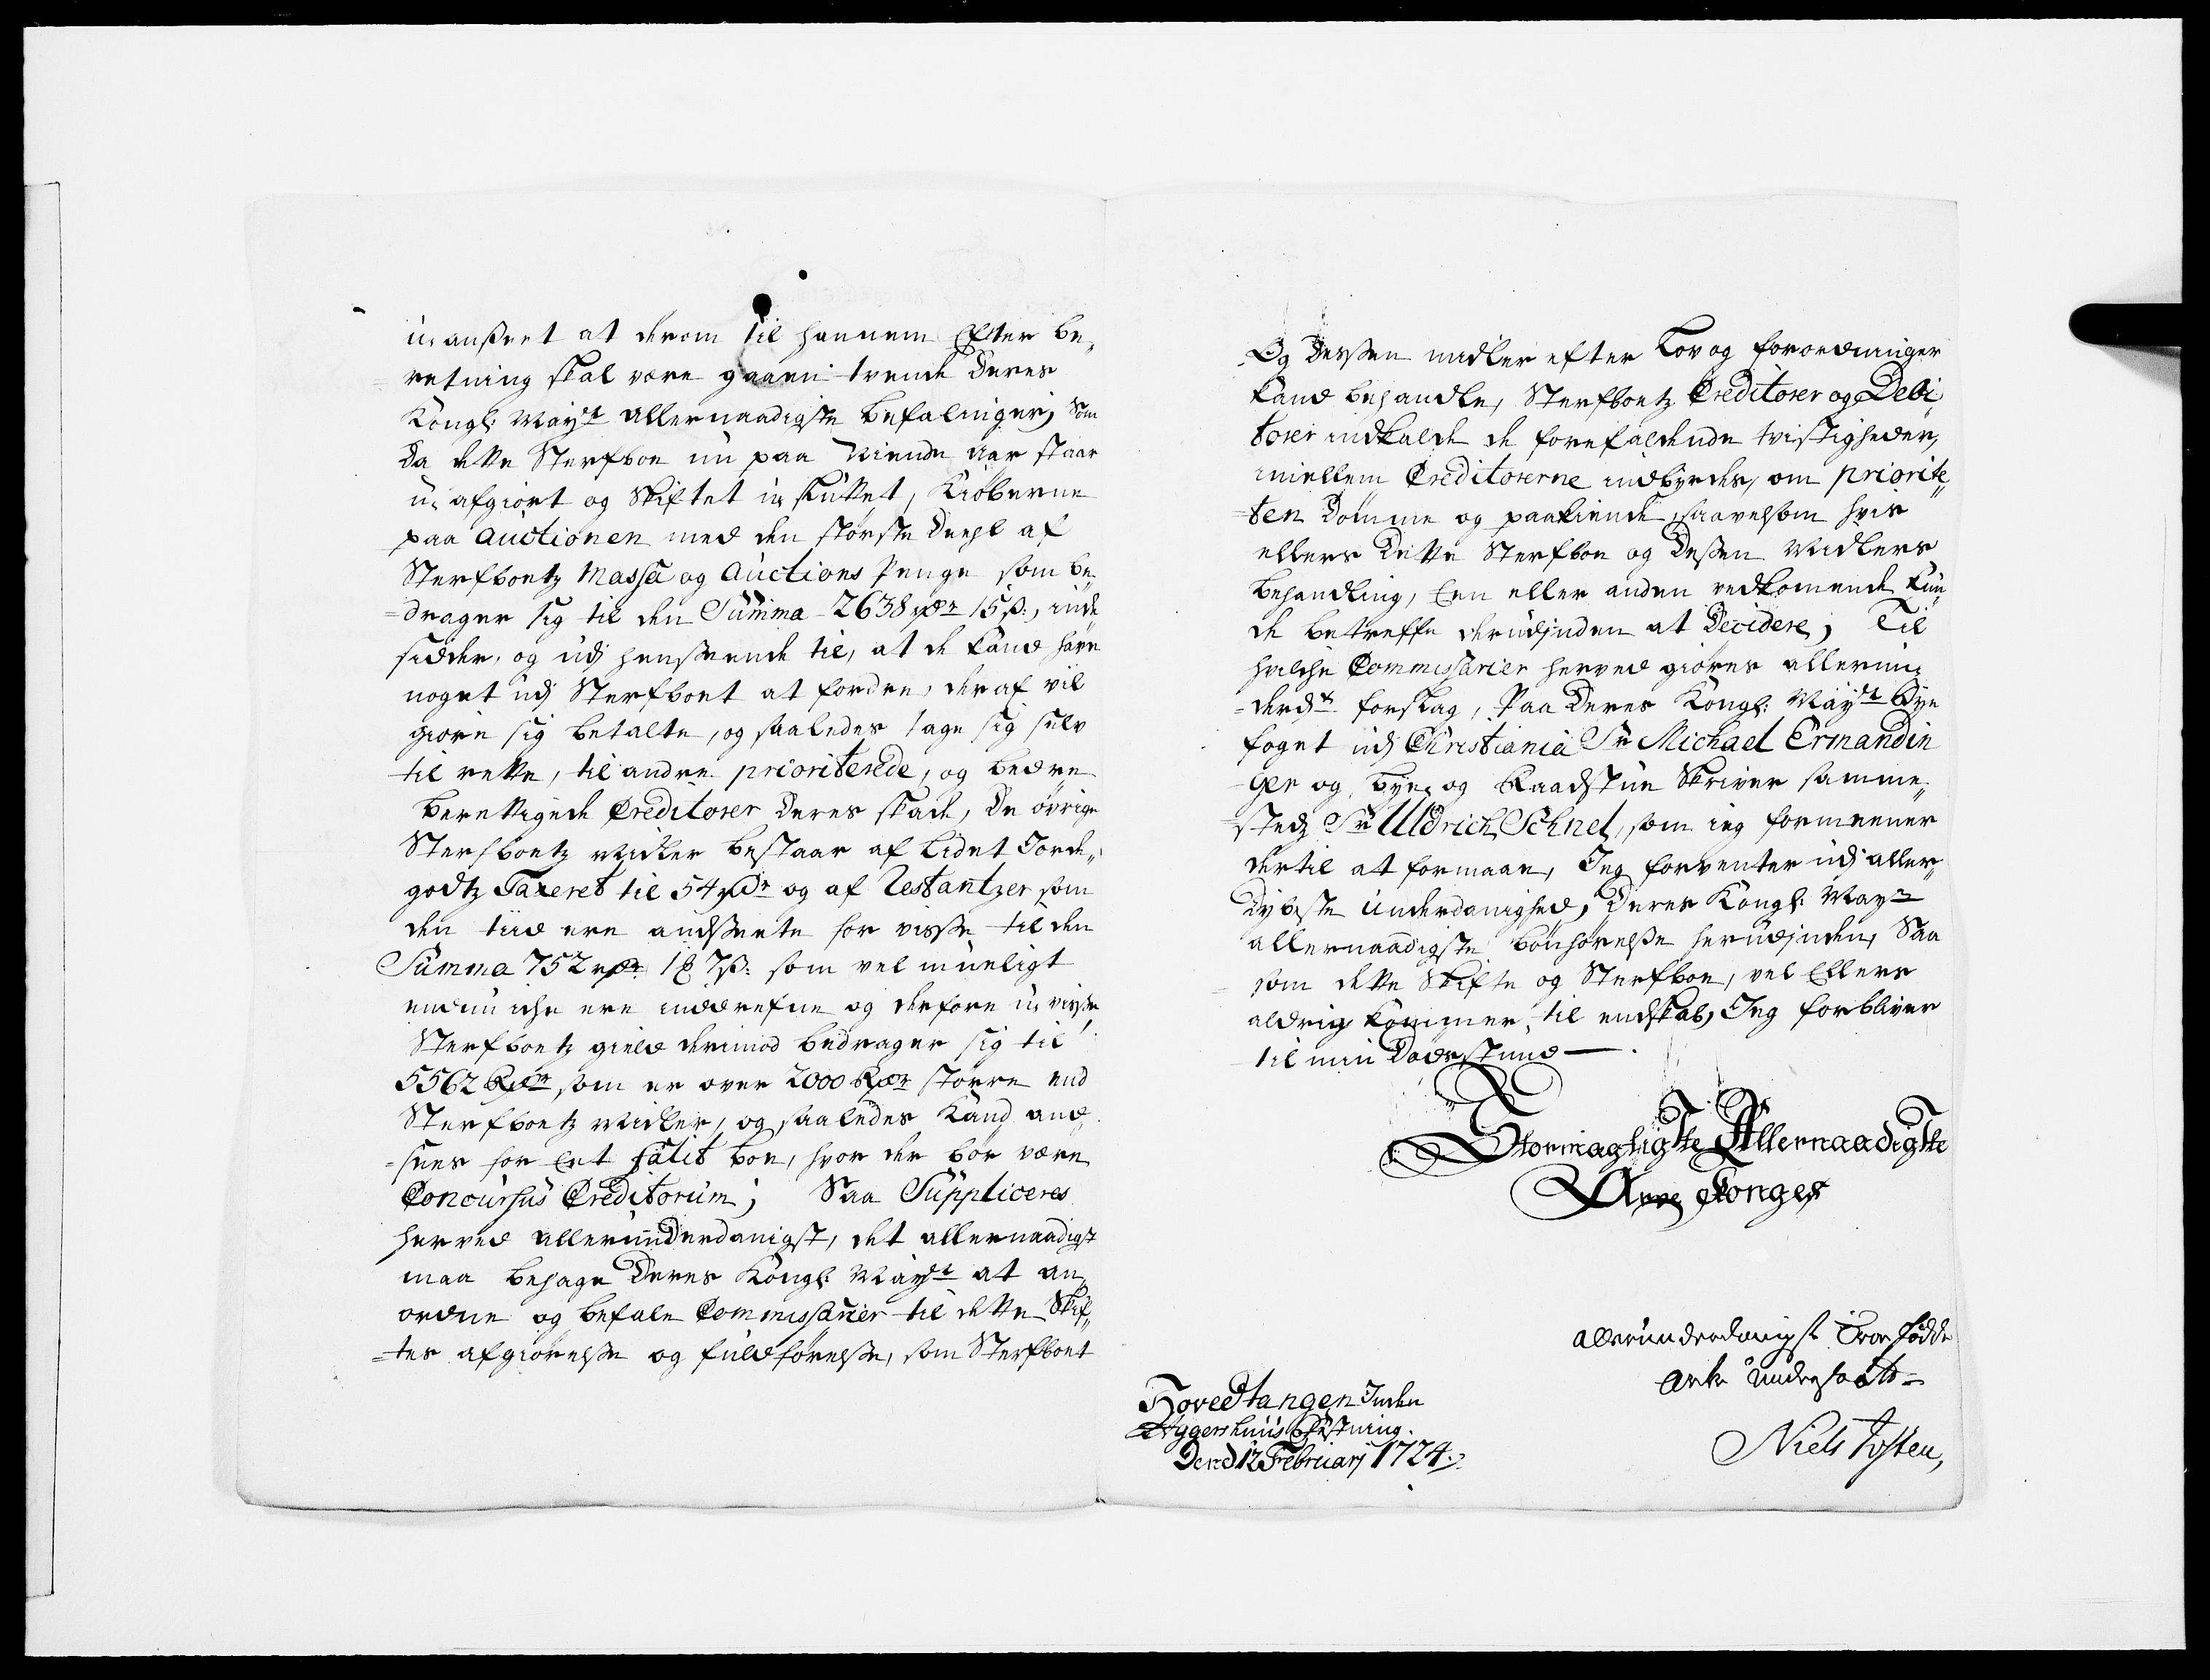 u-anseet at derom til hannem Efter be„
retning skal være gaaen trende Deres
Kongl: May.tt allernaadigste befalinger; Som
Da dette Sterfboe nu paa Niende Aar staar
u-afgiort og Skiftet u-sluttet, Kiøberne
paa Auctionen med den største Deehl af
Sterfboetz Massa og Auctions Penge som be„
=drager sig til den Summa 2638 rdr 15 ß:, inde
sidder, og udj henseende til, at de kand have
noget udj Sterfboet at fordre, deraf vil
giøre sig betalte, og saaledes tage sig selv
til rette, til andre prioriterede, og bedre
berettigede Creditorer Deres skade, De øvrige
Sterfboetz Midler bestaar af Lidet Jorde„
godtz Taxeret til 54 rdr og af Restantzer som
den tiid ere andseete for visse til den
Summa 752 rdr 1 ꝶ 7 ß: som vel mueligt
endnu iche ere inddrefne og derfore u-visse
Sterfboetz gield derimod bedrager sig til
5562 Rdr, som er over 2000 Rdr større end
Sterfboetz Midler, og saaledes kand and„
=sees for Eet falit boe, hvor der bør være
Concursus Creditorum; Saa Suppliceres
herved allerunderdanigst, det allernaadigst
maa behage Deres Kongl: May.tt at an„
ordne og befale Commissarier til dette Skif„
=tes afgiørelse og fuldførelse, som Sterfboet
Og Dessen midler efter Lov og forordninger
kand behandle, Sterfboetz Creditorer og Debi„
torer indkalde de forefaldende tvistigheder,
imellem Creditorerne indbyrdes, om priorite„
=ten Dømme og paakiende, saavelsom hvis
ellers Dette Sterfboe og Dessen Midlers
behandling, Een eller anden vedkomende kun„
de betreffe derudjnden at Decidere; Til
hvilche Commissarier herved giøres allerun„
=derd.st forslag, Paa Deres Kongl: May.tt Bye
foget udj Christiania Sr Michael Ermandin
ger og, bye- og Raadstue Skriver samme„
=stedz Sr Uldrich Schnel, som ieg formeener
dertil at formaae, Jeg forventer udj aller„
Dybeste underdanighed, Deres Kongl: May.tt
allernaadigste bønhørelse herudjnden, Saa
som dette Skifte og Sterfboe, vel Ellers
aldrig kommer, til endskab, Jeg forbliver
til min Dødsstund —.
Stormægtigste Allernaadigste
Arve Konges
allerunderdanigst Troe pligt
Arve Undersaat
Hovedtangen Inden
Aggershuus Fæstning.
Dend 12 Februarj 1724.
Niels Tosten,